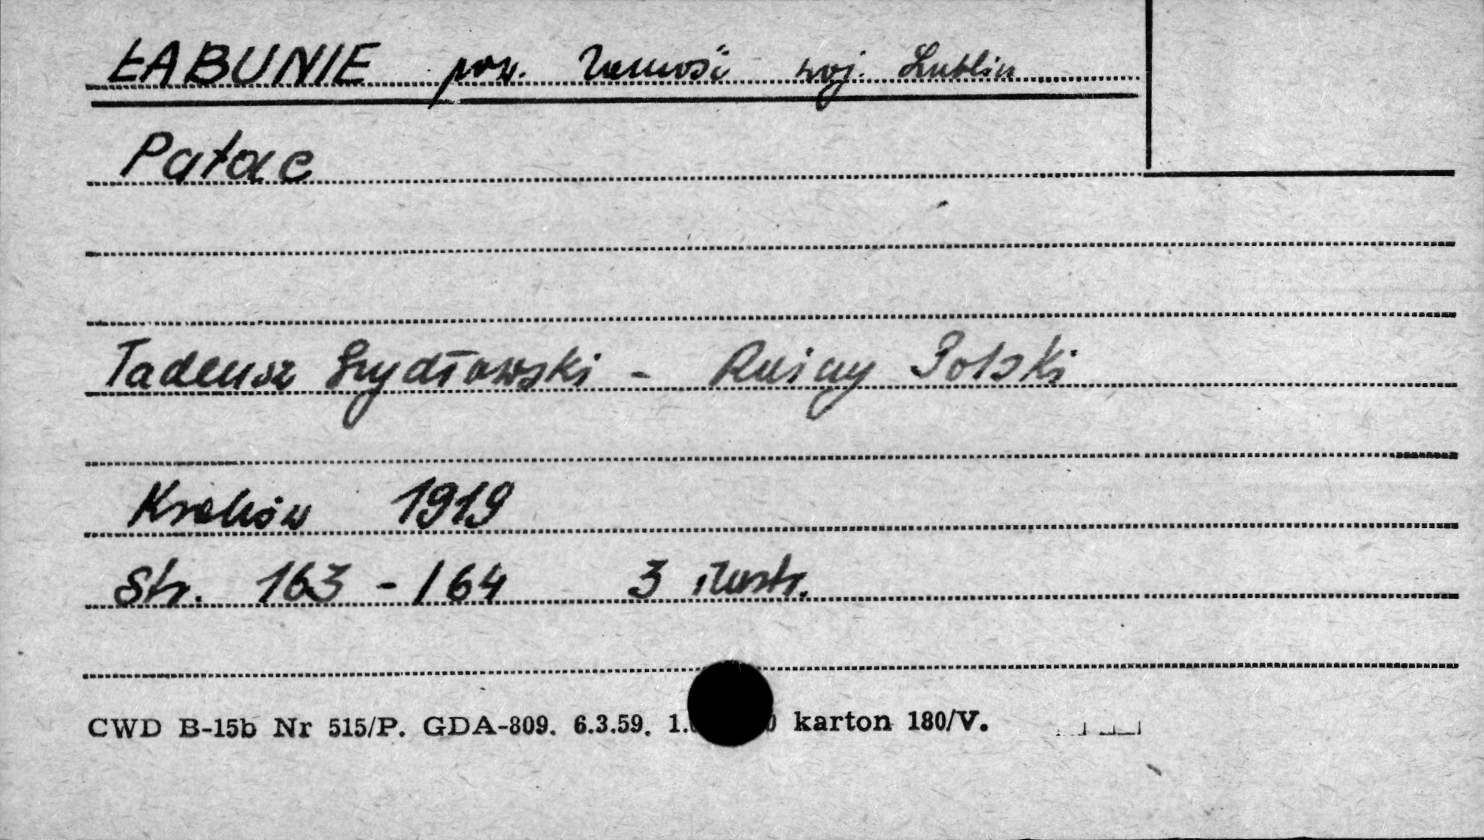 ŁABUNIE pow. Zamość woj. Lublin
Pałac
Tadeusz Szydłowski - Ruiny Polski
Kraków 1919
Str. 163 - 164 3 ilustr.
CWD B-15b Nr 515/P. GDA-809. 6.3.59. karton 180/V.